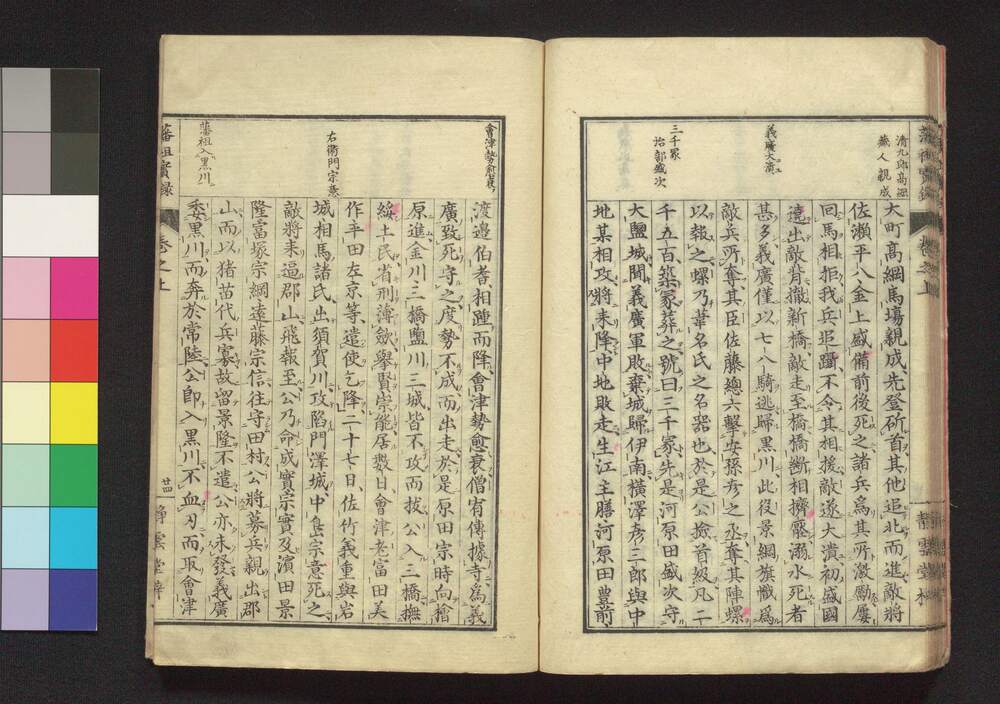 清九郎高綱
蔵人親成
大町高綱馬場親成先登斫首其他追北而進敵將
佐瀬平八金上盛備前後死之諸兵爲其所激勵屢
義廣大潰
回馬相拒我兵追躡不令其相援敵遂大潰初盛國
遶出敵背撤新橋敵走至橋橋斷相擠壓溺水死者
甚多義廣僅以七八騎逃歸黒川此役景綱旗幟爲
敵兵所奪其臣佐藤總六擊安孫彦之丞奪其陣螺
以報之螺乃葦名氏之名器也於是公撿首級凡二
三千冢
治部盛次
千五百築冢葬之號曰三千冢先是河原田盛次守
大鹽城聞義廣軍敗棄城歸伊南横澤彦三郎與中
地某相攻將來降中地敗走生江主膳河原田豊前
會津勢愈衰
渡邉伯耆相踵而降會津勢愈衰僧有傳據寺爲義
廣致死守之度勢不成而出走於是原田宗時向檜
原進金川三橋鹽川三城皆不攻而拔公入三橋撫
綏土民省刑薄斂擧賢崇能居數日會津老富田美
作平田左京等遣使乞降二十七日佐竹義重與岩
右衛門宗意
城相馬諸氏出須賀川攻陷門澤城中島宗意死之
敵將來逼郡山飛報至公乃命成實宗實及濱田景
隆富塚宗綱遠藤宗信往守田村公將募兵親出郡
山而以猪苗代兵寡故留景隆不遣公亦未發義廣
藩祖入黒川
委黒川而奔於常陸公即入黒川不血刃而取會津
藩祖實録
卷之上
廿四
靜雲堂梓